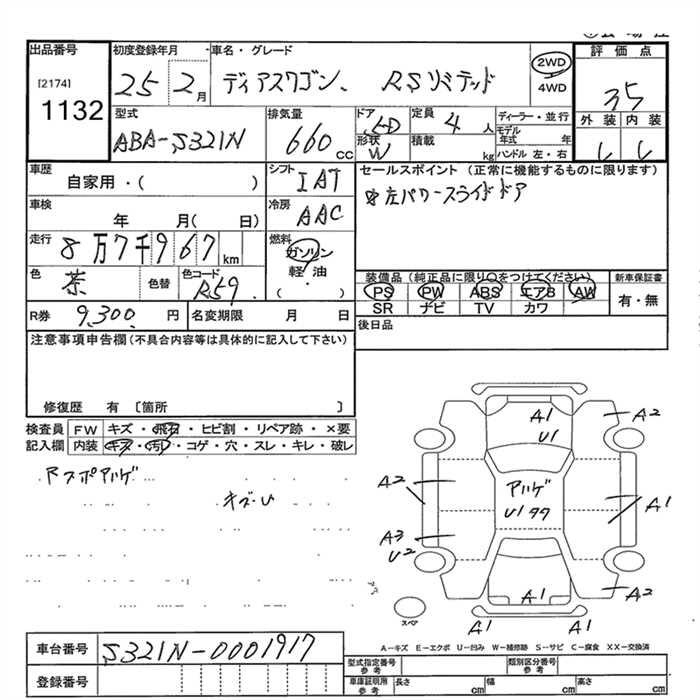 出品番号 初度登録年月 車名・グレード 評価点
[2174] 1132
25 2月 ディアスワゴン RSリミテッド 2WD 4WD 35
外装 内装
型式 排気量 ドア形状 定員 積載 ディーラー・並行
ABA-S321N 660cc 5D W 4人 kg モデル年式 年
ハンドル 左・右
車歴 自家用・( ) シフト IAT
セールスポイント (正常に機能するものに限ります)
左パワースライドドア
車検 年 月( 日) 冷房 AAC
走行 8万7千967km 燃料 ガソリン 軽油 ( )
色 茶 色替 色コード R59
装備品(純正品に限り○をつけてください) 新車保証書
PS PW ABS エアB AW 有・無
SR ナビ TV カワ
R券 9,300円 名変期限 月 日
後日品
注意事項申告欄(不具合内容等は具体的に記入して下さい)
修復歴 有 〔箇所 〕
検査員記入欄 FW キズ・飛石・ヒビ割・リペア跡・×要
内装 キズ・汚れ・コゲ・穴・スレ・キレ・破レ
Rスポアルゲ
キズ・U
A1 U1
A2
A2
アルゲ
U1 タタ
A1
A3 U2
A2
A1
スペア
A1 A1
A-キズ E-エクボ U-凹み W-補修跡 S-サビ C-腐食 XX-交換済
車台番号 S321N-0001917
登録番号
型式指定番号 参考 類別区分番号 参考
車庫証明用 参考 長さ cm 幅 cm 高さ cm